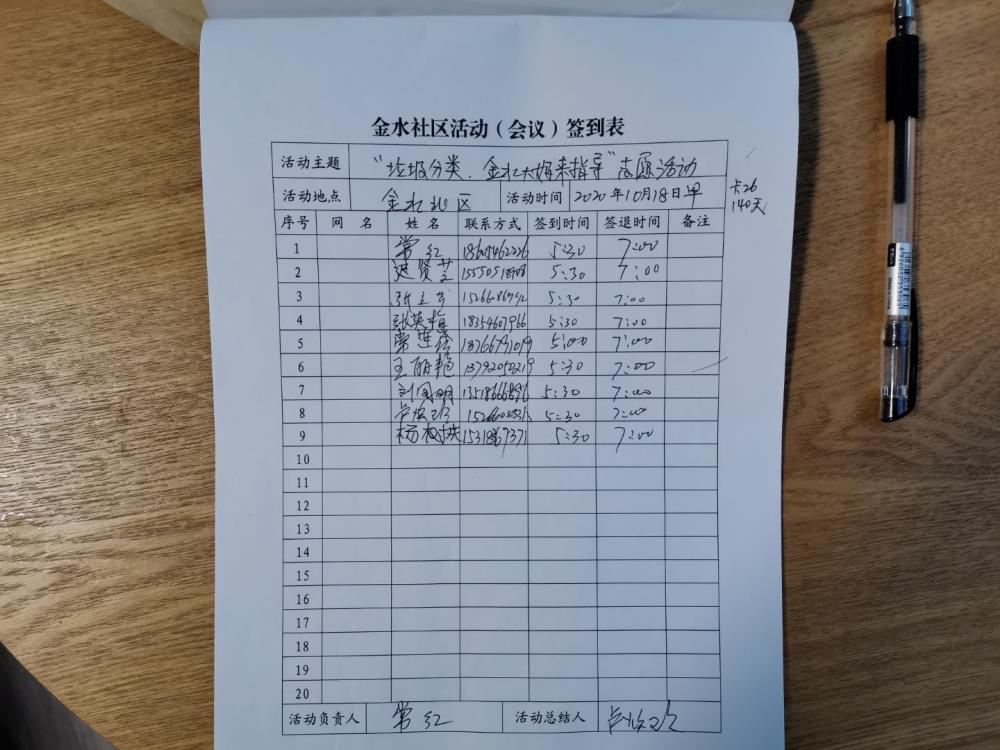 金水社区活动（会议）签到表
活动主题 “垃圾分类、金水大姐来指导”志愿活动
活动地点 金水社区 活动时间 2020年10月18日早
卡26
140天
序号 网 名 姓 名 联系方式 签到时间 签退时间 备注
1 常红 5:30 7:00
2 5:30 7:00
3 5:30 7:00
4 张英梅 18354607966 5:30 7:00
5 常莲 18766791019 5:00 7:00
6 王丽艳 13792052219 5:30 7:00
7 刘凤明 13518666896 5:30 7:00
8 5:30 7:00
9 杨 5:30 7:00
10
11
12
13
14
15
16
17
18
19
20
活动负责人 常红 活动总结人